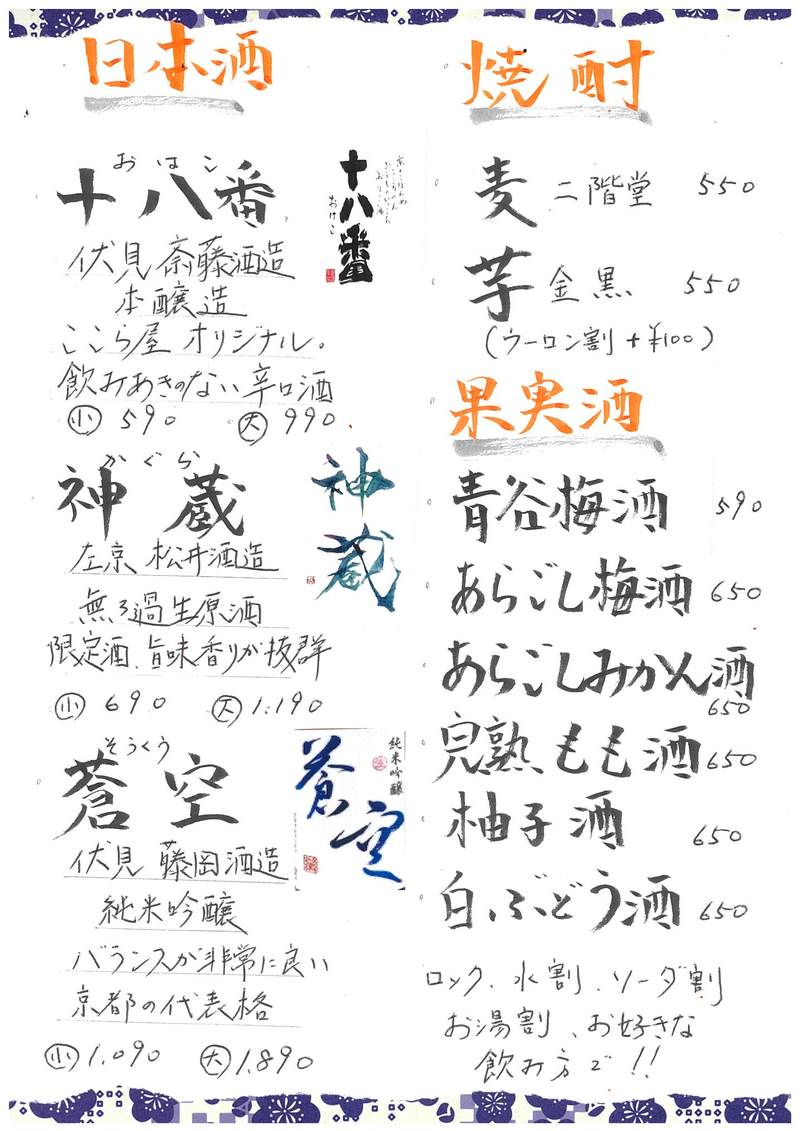 日本酒
おはこ
十八番
十八番
おはこ
伏見 斎藤酒造
本醸造
ここら屋 オリジナル。
飲みあきのない辛口酒
小 590 大 990
かぐら
神蔵
神蔵
左京 松井酒造
無ろ過生原酒
限定酒、旨味香りが抜群
小 690 大 1.190
そうくう
蒼空
純米吟醸
蒼空
伏見 藤岡酒造
純米吟醸
バランスが非常に良い
京都の代表格
小 1.090 大 1.890
焼酎
麦 二階堂 550
芋 金黒 550
(ウーロン割+¥100)
果実酒
青谷梅酒 590
あらごし梅酒 650
あらごしみかん酒 650
完熟もも酒 650
柚子酒 650
白ぶどう酒 650
ロック、水割、ソーダ割
お湯割、お好きな
飲み方で!!